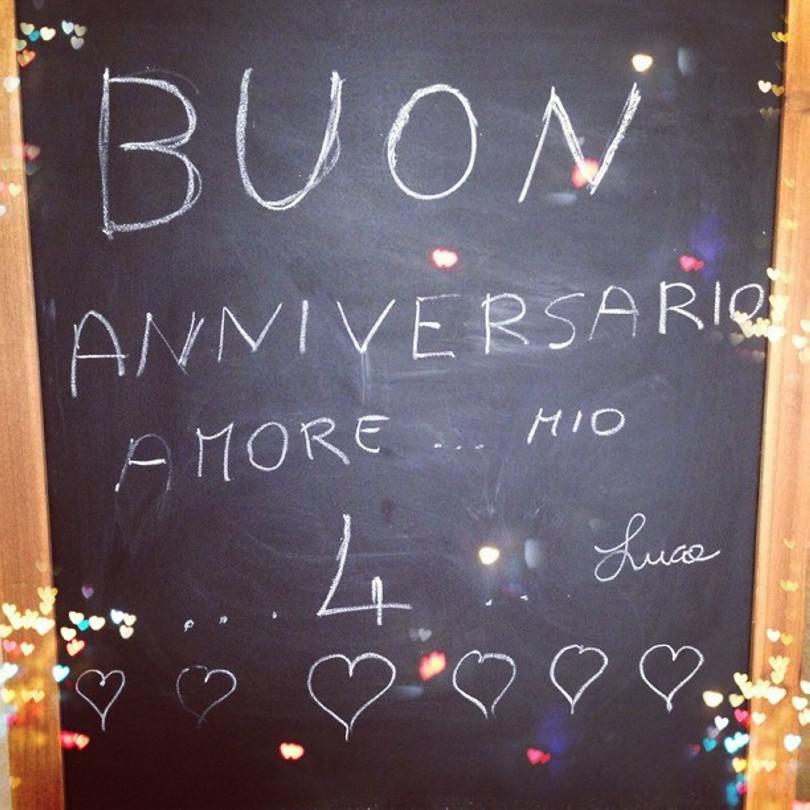 BUON
ANNIVERSARIO
AMORE ... MIO
Luca
.... 4 ...